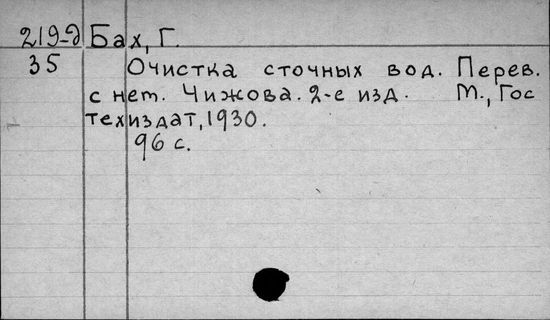 219-д Бах, Г.
35 Очистка сточных вод. Перев.
с нет. Чижова. 2-е изд. М., Гос
техиздат, 1930.
96 с.